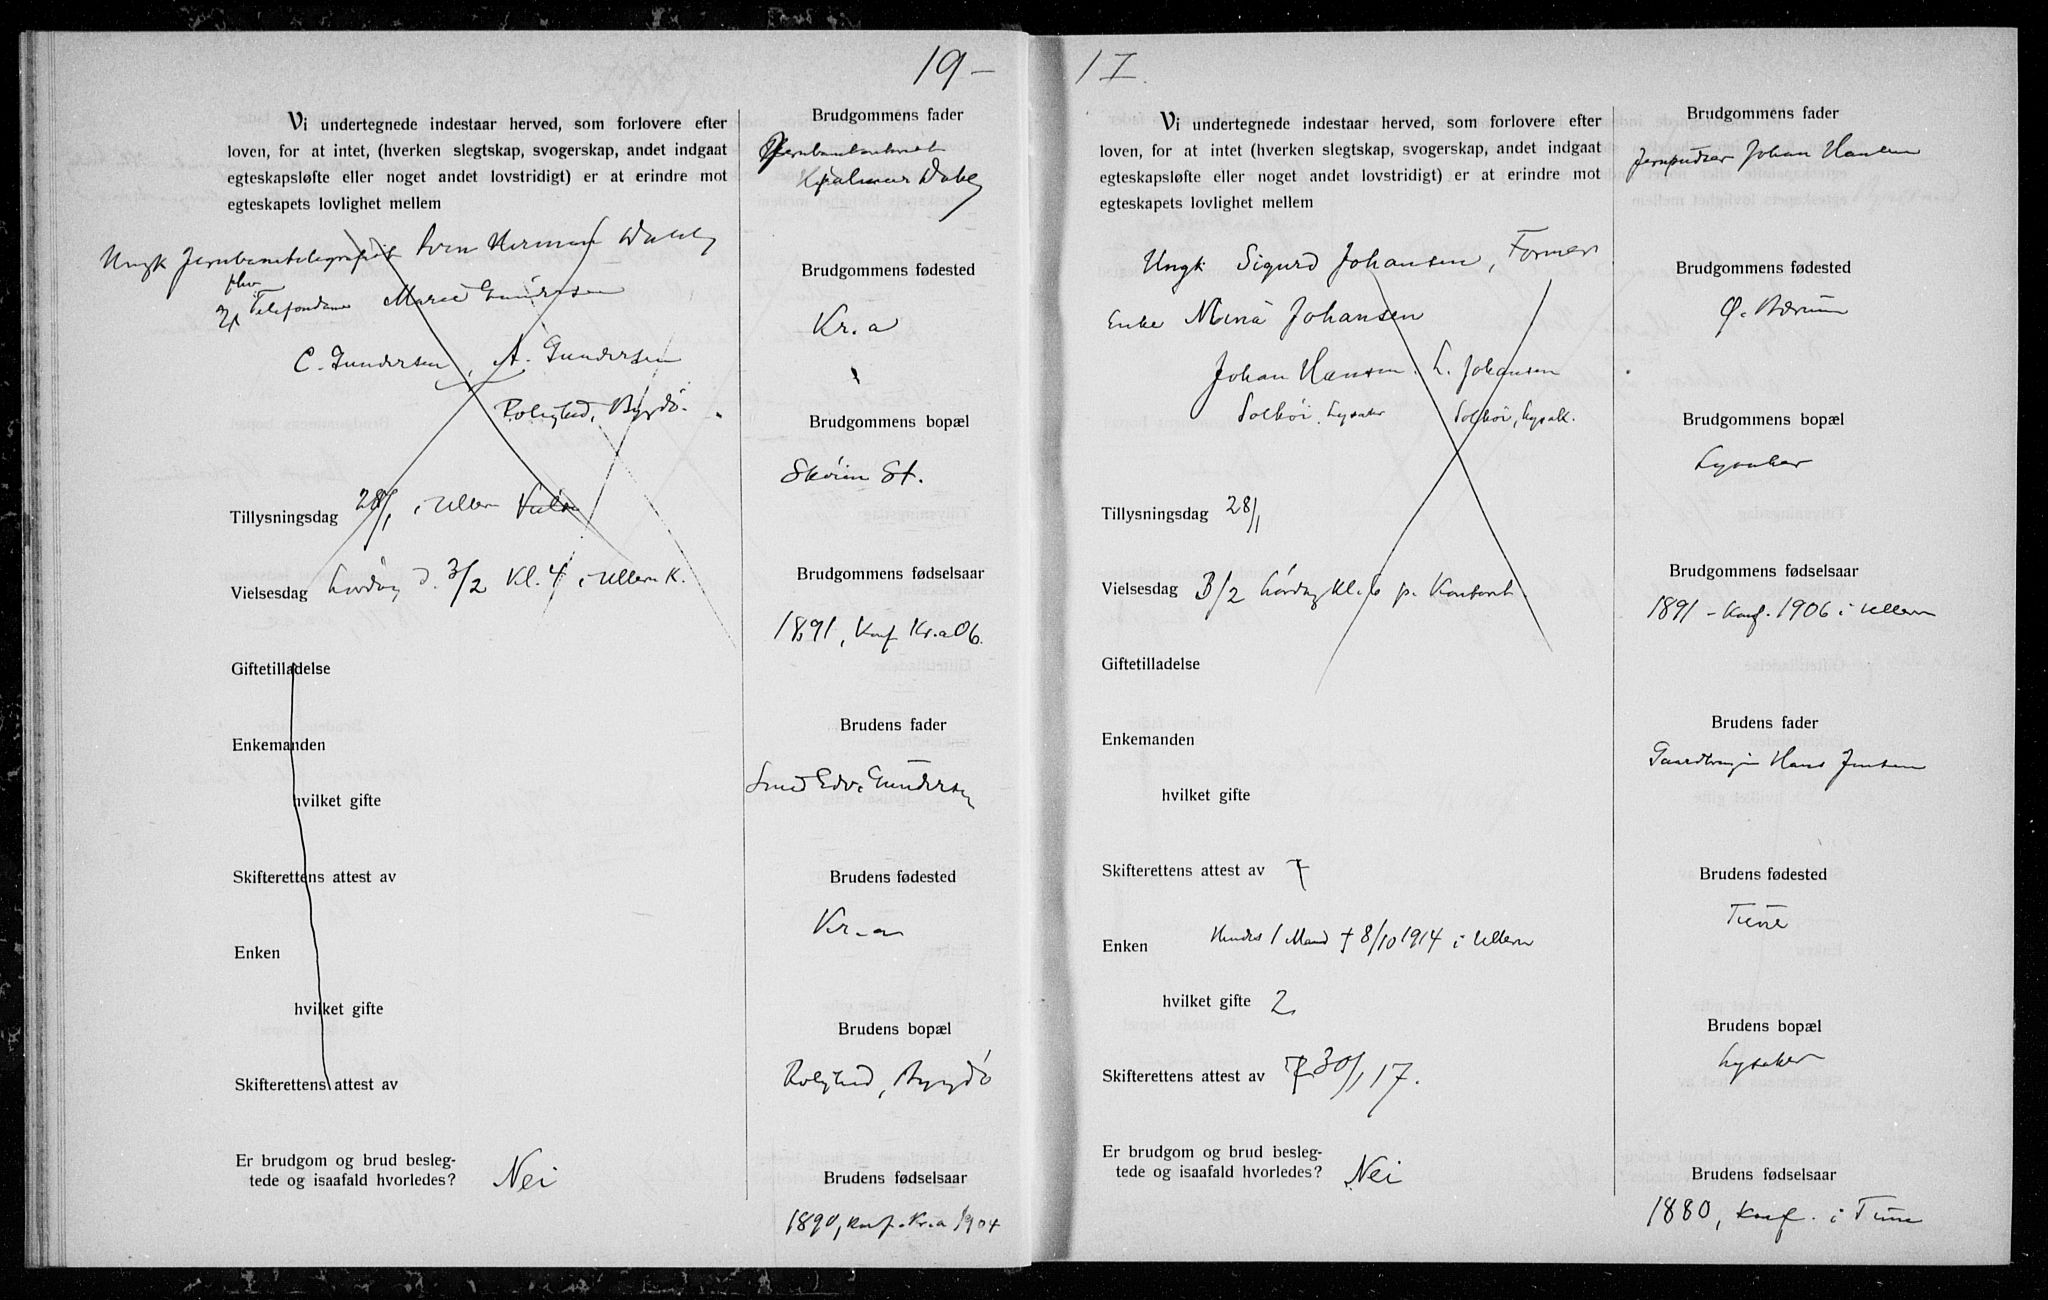 19-
Vi undertegnede indestaar herved, som forlovere efter
loven, for at intet, (hverken slegtskap, svogerskap, andet indgaat
egteskapsløfte eller noget andet lovstridigt) er at erindre mot
egteskapets lovlighet mellem
Ungk Jernbanetelegrafist Sven Herman Dahl
phv
Telefondame Marie Gundersen
C. Gundersen, A. Gundersen
Rolighed, Bygdö.
Tillysningsdag 28/1 i Ullern
Vielsesdag Lørdag d. 3/2 Kl. 4 i Ullern K.
Giftetilladelse
Enkemanden
hvilket gifte
Skifterettens attest av
Enken
hvilket gifte
Skifterettens attest av
Er brudgom og brud besleg-
tede og isaafald hvorledes? Nei
Brudgommens fader
Hjalmar Dahl
Brudgommens fødested
Kr.a
Brudgommens bopæl
Skøien St.
Brudgommens fødselsaar
1891, Konf Kr.a 06.
Brudens fader
Smed Edv. Gundersen
Brudens fødested
Kr.a
Brudens bopæl
Rolighed, Bygdö
Brudens fødselsaar
1890, konf. Kr.a 1904
17.
Vi undertegnede indestaar herved, som forlovere efter
loven, for at intet, (hverken slegtskap, svogerskap, andet indgaat
egteskapsløfte eller noget andet lovstridigt) er at erindre mot
egteskapets lovlighet mellem
Ungk Sigurd Johansen, Former
Enke Mina Johansen
Johan Hansen. L. Johansen
Solbøi, Lysaker Solbøi, Lysak.
Tillysningsdag 28/1
Vielsesdag 3/2 Lørdag Kl. 6 p. Kontoret.
Giftetilladelse
Enkemanden
hvilket gifte
Skifterettens attest av
Enken Hendes 1 Mand † 8/10 1914 i Ullern
hvilket gifte 2
Skifterettens attest av 30/1 17.
Er brudgom og brud besleg-
tede og isaafald hvorledes? Nei
Brudgommens fader
Jernpudser Johan Hansen
Brudgommens fødested
Ø. Bærum
Brudgommens bopæl
Lysaker
Brudgommens fødselsaar
1891 - Konf. 1906 i Ullern
Brudens fader
Hans Jensen
Brudens fødested
Tune
Brudens bopæl
Lysaker
Brudens fødselsaar
1880, Konf. i Tune